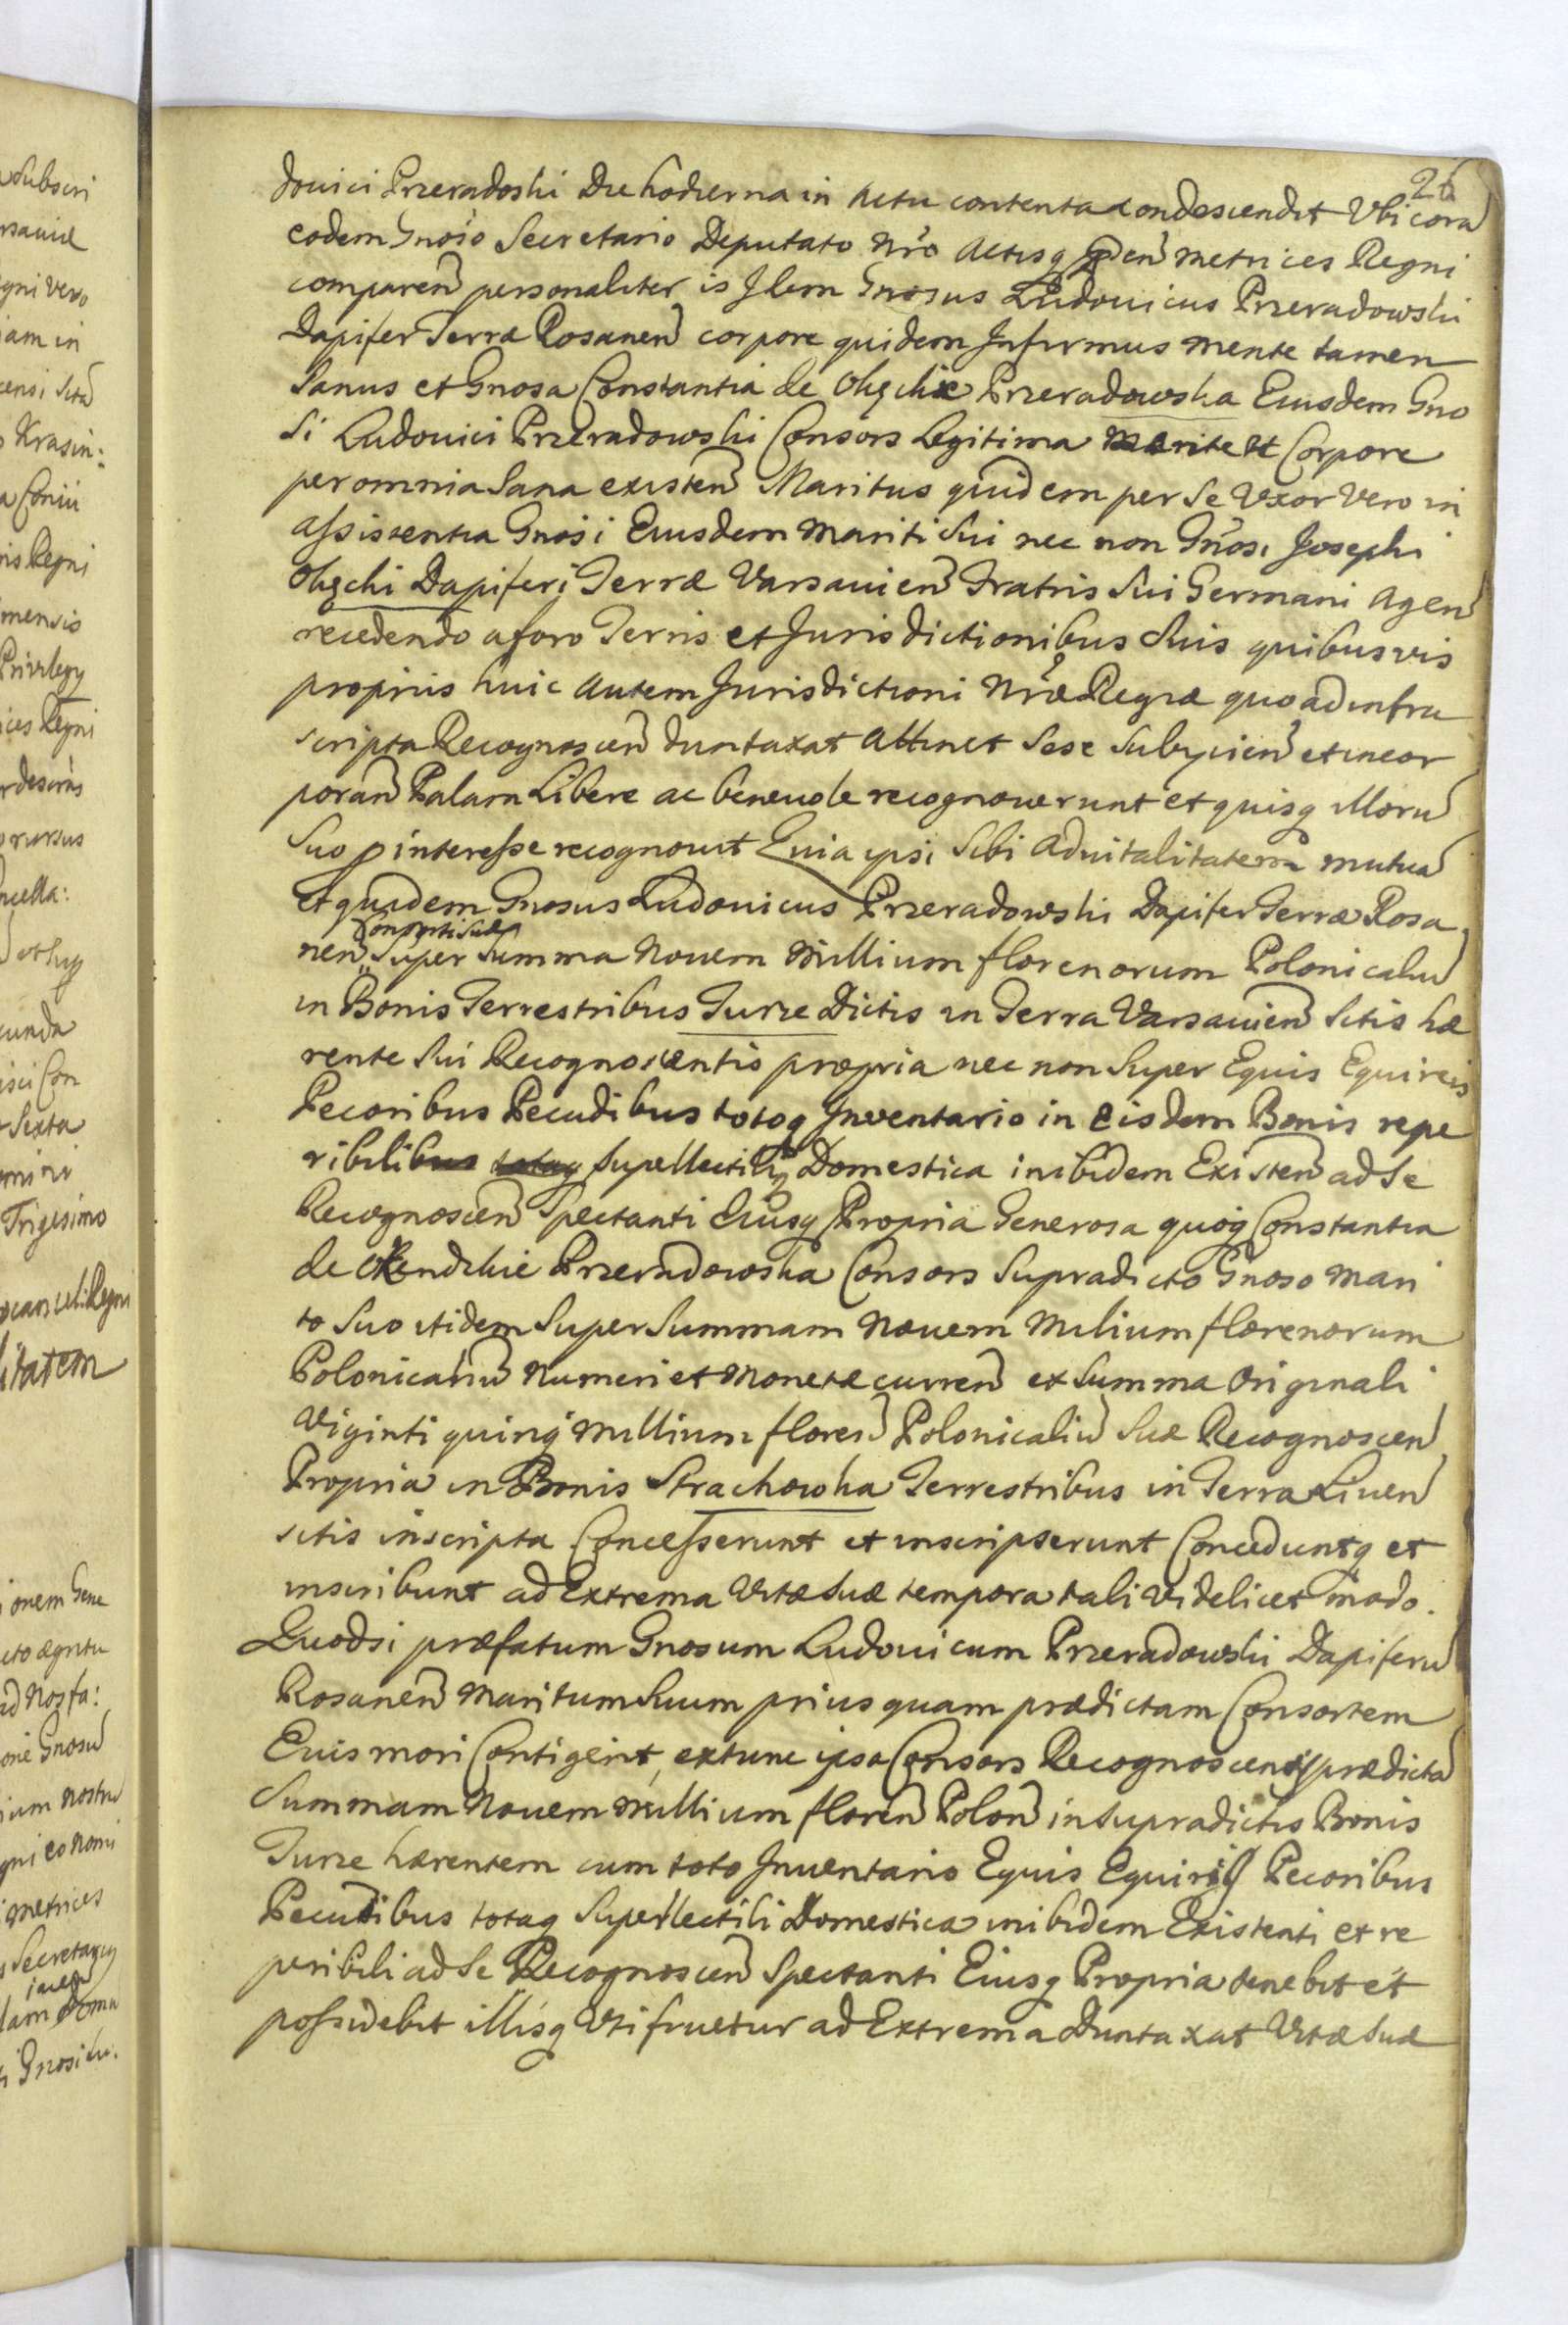 26
douici Przeradoski Die hodierna in Actu contenta condescendit Vbi cora
eodem Gnoso Secretario Deputato Nro Actisq Pen Metrices Regni
comparen personaliter is Jdem Gnosus Ludouicus Przeradowski
Dapifer Terræ Rosanen corpore quidem Jnfirmus mente tamen
Sanus et Gnosa Constantia de Przeradowska Eiusdem Gno
si Ludouici Przeradowski Consors Legitima Mente et Corpore
per omnia Sana existen Maritus quidem per Se Vxor Vero in
assistentia Gnosi Eiusdem Mariti Sui nec non Gnosi Josephi
Dapiferi Terræ Varsauien Fratris Sui Germani Agen
recedendo a foro Terris et Jurisdictionibus Suis quibusvis
proprijs huic Autem Jurisdictioni Nræ Regiæ quo ad infra
scripta Recognoscen duntaxat Attinet Sese Subijcien et incor
poran Palam Libere ac beneuole recognouerunt et quisq illoru
Suo p interesse recognouit Quia ipsi Sibi Aduitalitatem mutua
Et quidem Gnosus Ludouicus Przeradowski Dapifer Terræ Rosa
Consorti Suæ
nen Super Summa Nouem Millium florenorum Polonicaliu
in Bonis Terrestribus Turze Dictis in Terra Varsauien Sitis hæ
rente Sui Recognoscentis propria nec non Super Equis Equireis
Pecoribus Pecudibus totoq Jnventario in Eisdem Bonis repe
ribilibus totaq Supellectiliq Domestica inibidem Existen ad Se
Recognoscen Spectanti Eiusq Propria Generosa quoq Constantia
de Przeradowska Consors Supradicto Gnoso Mari
to Suo itidem Super Summam Nouem Milium florenorum
Polonicaliu Numeri et Monetæ curren ex Summa Originali
Viginti quinq Millium floren Polonicaliu Suæ Recognoscen
Propria in Bonis Strachowka Terrestribus in Terra Liuen
sitis inscripta Concesserunt et inscripserunt Conceduntq et
inscribunt ad Extrema Vitæ Suæ tempora tali Videlicet modo.
Quodsi præfatum Gnosum Ludouicum Przeradowski Dapiferu
Rosanen Maritum Suum prius quam prædictam Consortem
Euis mori Contigerit, extunc ipsa Consors Recognoscens prædicta
Summam Nouem Millium floren Polon in Supradictis Bonis
Turze hærentem cum toto Jnuentario Equis Equirijs Pecoribus
Pecudibus totaq Supellectili Domestica inibidem Existenti et re
peribili ad Se Recognoscen Spectanti Eiusq Propria tenebit et
possidebit illisq Vti fruetur ad Extrema Duntaxat Vitæ Suæ